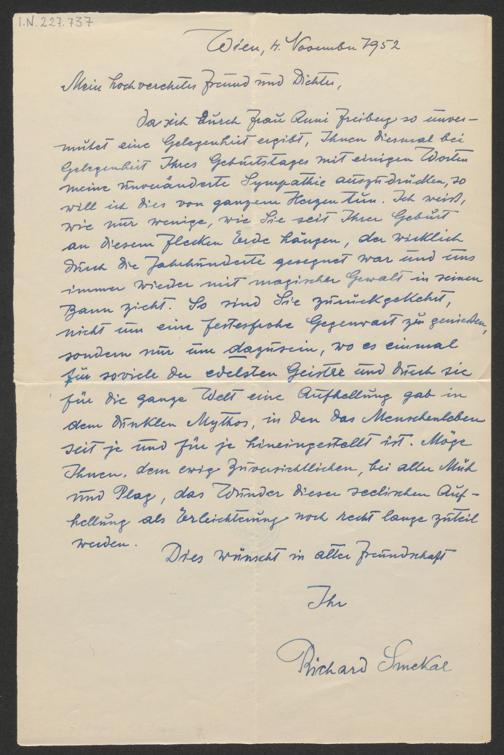 I.N. 227.737
Wien, 4. November 1952
Mein hochverehrter Freund und Dichter,
Da sich durch Frau Anni Freiberg so unver-
mutet eine Gelegenheit ergibt, Ihnen diesmal bei
Gelegenheit Ihres Geburtstages mit einigen Worten
meine unveränderte Sympathie auszudrücken, so
will ich dies von ganzem Herzen tun. Ich weiß,
wie nur wenige, wie Sie seit Ihrer Geburt
an diesem Flecken Erde hängen, der wirklich
durch die Jahrhunderte gesegnet war und uns
immer wieder mit magischer Gewalt in seinen
Bann zieht. So sind Sie zurückgekehrt,
nicht um eine festesfrohe Gegenwart zu genießen,
sondern nur um dazusein, wo es einmal
für soviele der edelsten Geister und durch sie
für die ganze Welt eine Aufhellung gab in
dem dunklen Mythos, in den das Menschenleben
seit je und für je hineingestellt ist. Möge
Ihnen, dem ewig Zuversichtlichen, bei aller Müh
und Plag, das Wunder dieser seelischen Auf-
hellung als Erleichterung noch recht lange zuteil
werden.
Dies wünscht in alter Freundschaft
Ihr
Richard Smekal